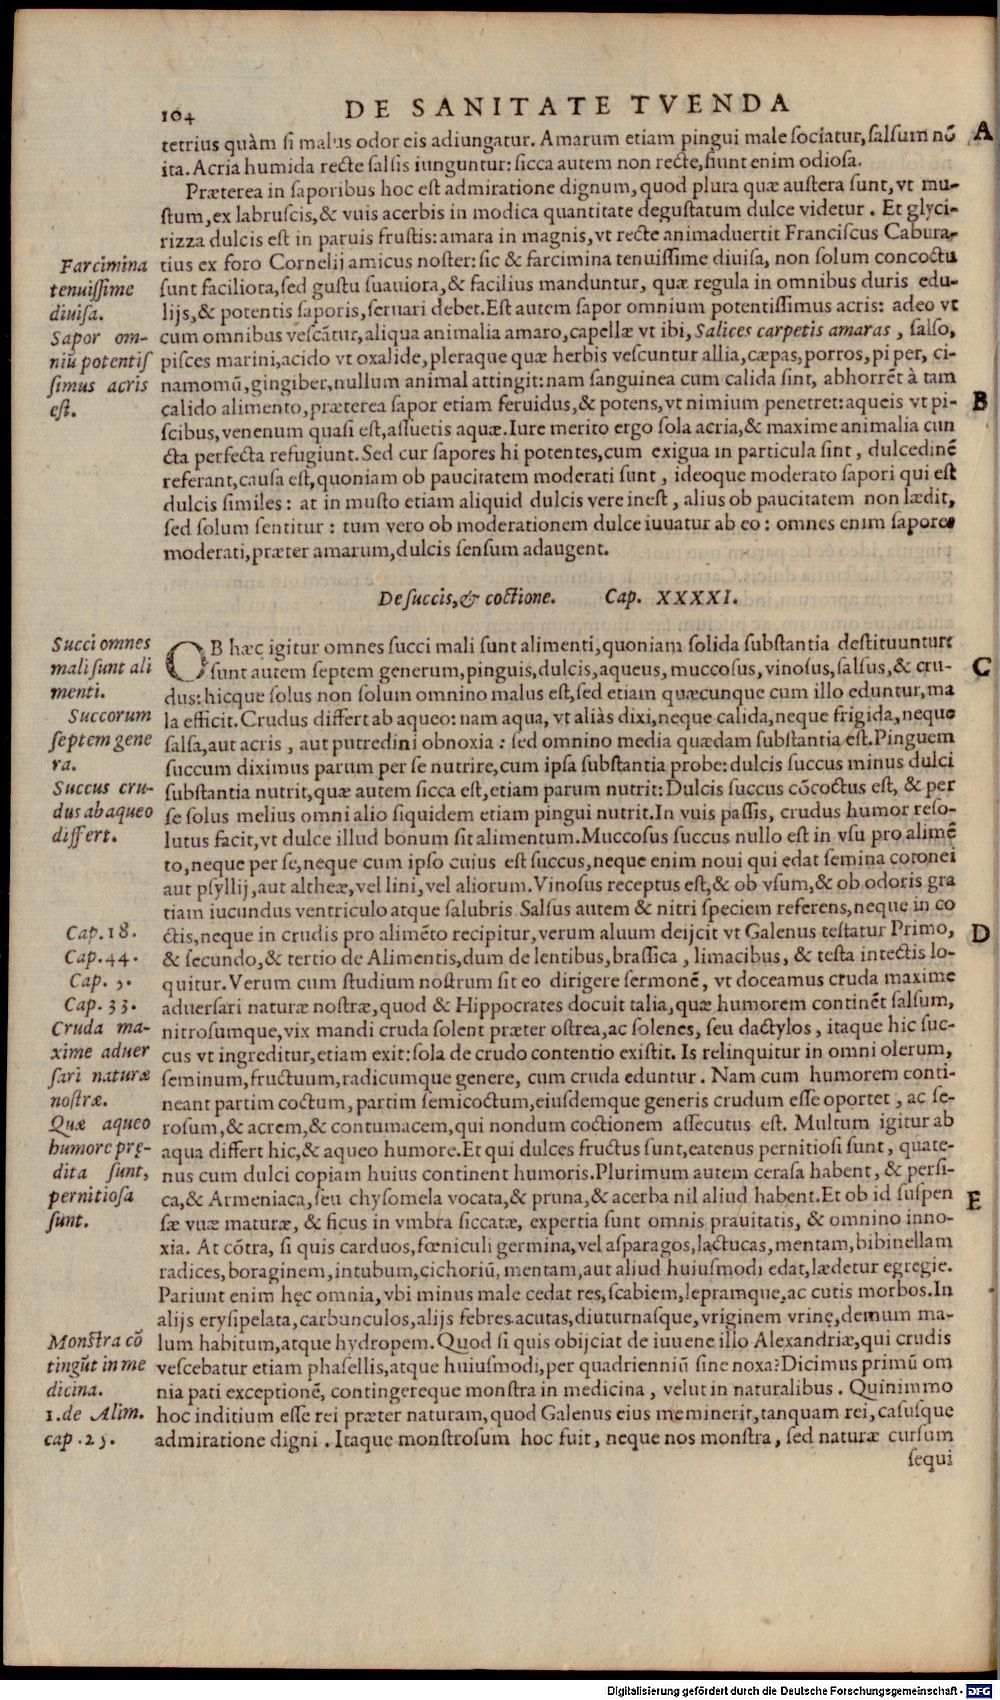 104
DE SANITATE TVENDA
tetrius quàm si malus odor eis adiungatur. Amarum etiam pingui male sociatur, salsum nō
A
ita. Acria humida recte salsis iunguntur: sicca autem non recte, fiunt enim odiosa.
Præterea in saporibus hoc est admiratione dignum, quod plura quæ austera sunt, vt mu-
stum, ex labruscis, & vuis acerbis in modica quantitate degustatum dulce videtur. Et glyci-
rizza dulcis est in paruis frustis: amara in magnis, vt recte animaduertit Franciscus Cabura-
tius ex foro Cornelij amicus noster: sic & farcimina tenuissime diuisa, non solum concoctu
sunt faciliora, sed gustu suauiora, & facilius manduntur, quæ regula in omnibus duris edu-
lijs, & potentis saporis, seruari debet. Est autem sapor omnium potentissimus acris: adeo vt
cum omnibus vescātur, aliqua animalia amaro, capellæ vt ibi, Salices carpetis amaras, salso,
pisces marini, acido vt oxalide, pleraque quæ herbis vescuntur allia, cæpas, porros, piper, ci-
namomū, gingiber, nullum animal attingit: nam sanguinea cum calida sint, abhorrēt à tam
calido alimento, præterea sapor etiam feruidus, & potens, vt nimium penetret: aqueis vt pi-
B
scibus, venenum quasi est, assuetis aquæ. Iure merito ergo sola acria, & maxime animalia cun
cta perfecta refugiunt. Sed cur sapores hi potentes, cum exigua in particula sint, dulcedinē
referant, causa est, quoniam ob paucitatem moderati sunt, ideoque moderato sapori qui est
dulcis similes: at in musto etiam aliquid dulcis vere inest, alius ob paucitatem non lædit,
sed solum sentitur: tum vero ob moderationem dulce iuuatur ab eo: omnes enim sapores
moderati, præter amarum, dulcis sensum adaugent.
Farcimina
tenuissime
diuisa.
Sapor om-
niū potentis
simus acris
est.
De succis, & coctione. Cap. XXXXI.
OB hæc igitur omnes succi mali sunt alimenti, quoniam solida substantia destituuntur:
sunt autem septem generum, pinguis, dulcis, aqueus, muccosus, vinosus, salsus, & cru-
C
dus: hicque solus non solum omnino malus est, sed etiam quæcunque cum illo eduntur, ma
la efficit. Crudus differt ab aqueo: nam aqua, vt aliàs dixi, neque calida, neque frigida, neque
salsa, aut acris, aut putredini obnoxia: sed omnino media quædam substantia est. Pinguem
succum diximus parum per se nutrire, cum ipsa substantia probe: dulcis succus minus dulci
substantia nutrit, quæ autem sicca est, etiam parum nutrit: Dulcis succus cōcoctus est, & per
se solus melius omni alio siquidem etiam pingui nutrit. In vuis passis, crudus humor reso-
lutus facit, vt dulce illud bonum sit alimentum. Muccosus succus nullo est in vsu pro alimē
to, neque per se, neque cum ipso cuius est succus, neque enim noui qui edat semina cotonei
aut psyllij, aut altheæ, vel lini, vel aliorum. Vinosus receptus est, & ob vsum, & ob odoris gra
tiam iucundus ventriculo atque salubris. Salsus autem & nitri speciem referens, neque in co
ctis, neque in crudis pro alimēto recipitur, verum aluum deijcit vt Galenus testatur Primo,
D
& secundo, & tertio de Alimentis, dum de lentibus, brassica, limacibus, & testa intectis lo-
quitur. Verum cum studium nostrum sit eo dirigere sermonē, vt doceamus cruda maxime
aduersari naturæ nostræ, quod & Hippocrates docuit talia, quæ humorem continēt salsum,
nitrosumque, vix mandi cruda solent præter ostrea, ac solenes, seu dactylos, itaque hic suc-
cus vt ingreditur, etiam exit: sola de crudo contentio existit. Is relinquitur in omni olerum,
seminum, fructuum, radicumque genere, cum cruda eduntur. Nam cum humorem conti-
neant partim coctum, partim semicoctum, eiusdemque generis crudum esse oportet, ac se-
rosum, & acrem, & contumacem, qui nondum coctionem assecutus est. Multum igitur ab
aqua differt hic, & aqueo humore. Et qui dulces fructus sunt, eatenus pernitiosi sunt, quate-
nus cum dulci copiam huius continent humoris. Plurimum autem cerasa habent, & persi-
ca, & Armeniaca, seu chysomela vocata, & pruna, & acerba nil aliud habent. Et ob id suspen
E
sæ vuæ maturæ, & ficus in vmbra siccatæ, expertia sunt omnis prauitatis, & omnino inno-
xia. At cōtra, si quis carduos, fœniculi germina, vel asparagos, lactucas, mentam, bibinellam
radices, boraginem, intubum, cichoriū, mentam, aut aliud huiusmodi edat, lædetur egregie.
Pariunt enim hęc omnia, vbi minus male cedat res, scabiem, lepramque, ac cutis morbos. In
alijs erysipelata, carbunculos, alijs febres acutas, diuturnasque, vriginem vrinę, demum ma-
lum habitum, atque hydropem. Quod si quis obijciat de iuuene illo Alexandriæ, qui crudis
vescebatur etiam phasellis, atque huiusmodi, per quadrienniū sine noxa? Dicimus primū om
nia pati exceptionē, contingereque monstra in medicina, velut in naturalibus. Quinimmo
hoc inditium esse rei præter naturam, quod Galenus eius meminerit, tanquam rei, casusque
admiratione digni. Itaque monstrosum hoc fuit, neque nos monstra, sed naturæ cursum
sequi
Succi omnes
mali sunt ali
menti.
Succorum
septem gene
ra.
Succus cru-
dus ab aqueo
differt.
Cap. 18.
Cap. 44.
Cap. 5.
Cap. 33.
Cruda ma-
xime aduer
sari naturæ
nostræ.
Quæ aqueo
humore prę-
dita sunt,
pernitiosa
sunt.
Monstra cō
tingūt in me
dicina.
1. de Alim.
cap. 25.
Digitalisierung gefördert durch die Deutsche Forschungsgemeinschaft - DFG